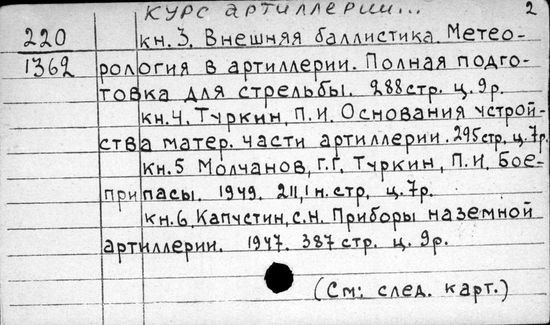 курс артиллерии... 2
220 кн. 3. Внешняя баллистика. Метео-
1362 рология в артиллерии. Полная подго-
товка для стрельбы. 288 стр. ц. 9р.
кн. 4. Туркин, П. И. Основания устрой-
ства матер. части артиллерии. 295 стр. ц. 7р.
кн. 5 Молчанов, Г. Г. Туркин, П. И. Бое-
припасы. 1949. 211, 1 н. стр. ц. 7р.
кн. 6. Капустин, С. Н. Приборы наземной
артиллерии. 1947. 387 стр. ц. 9р.
(См: след. карт.)